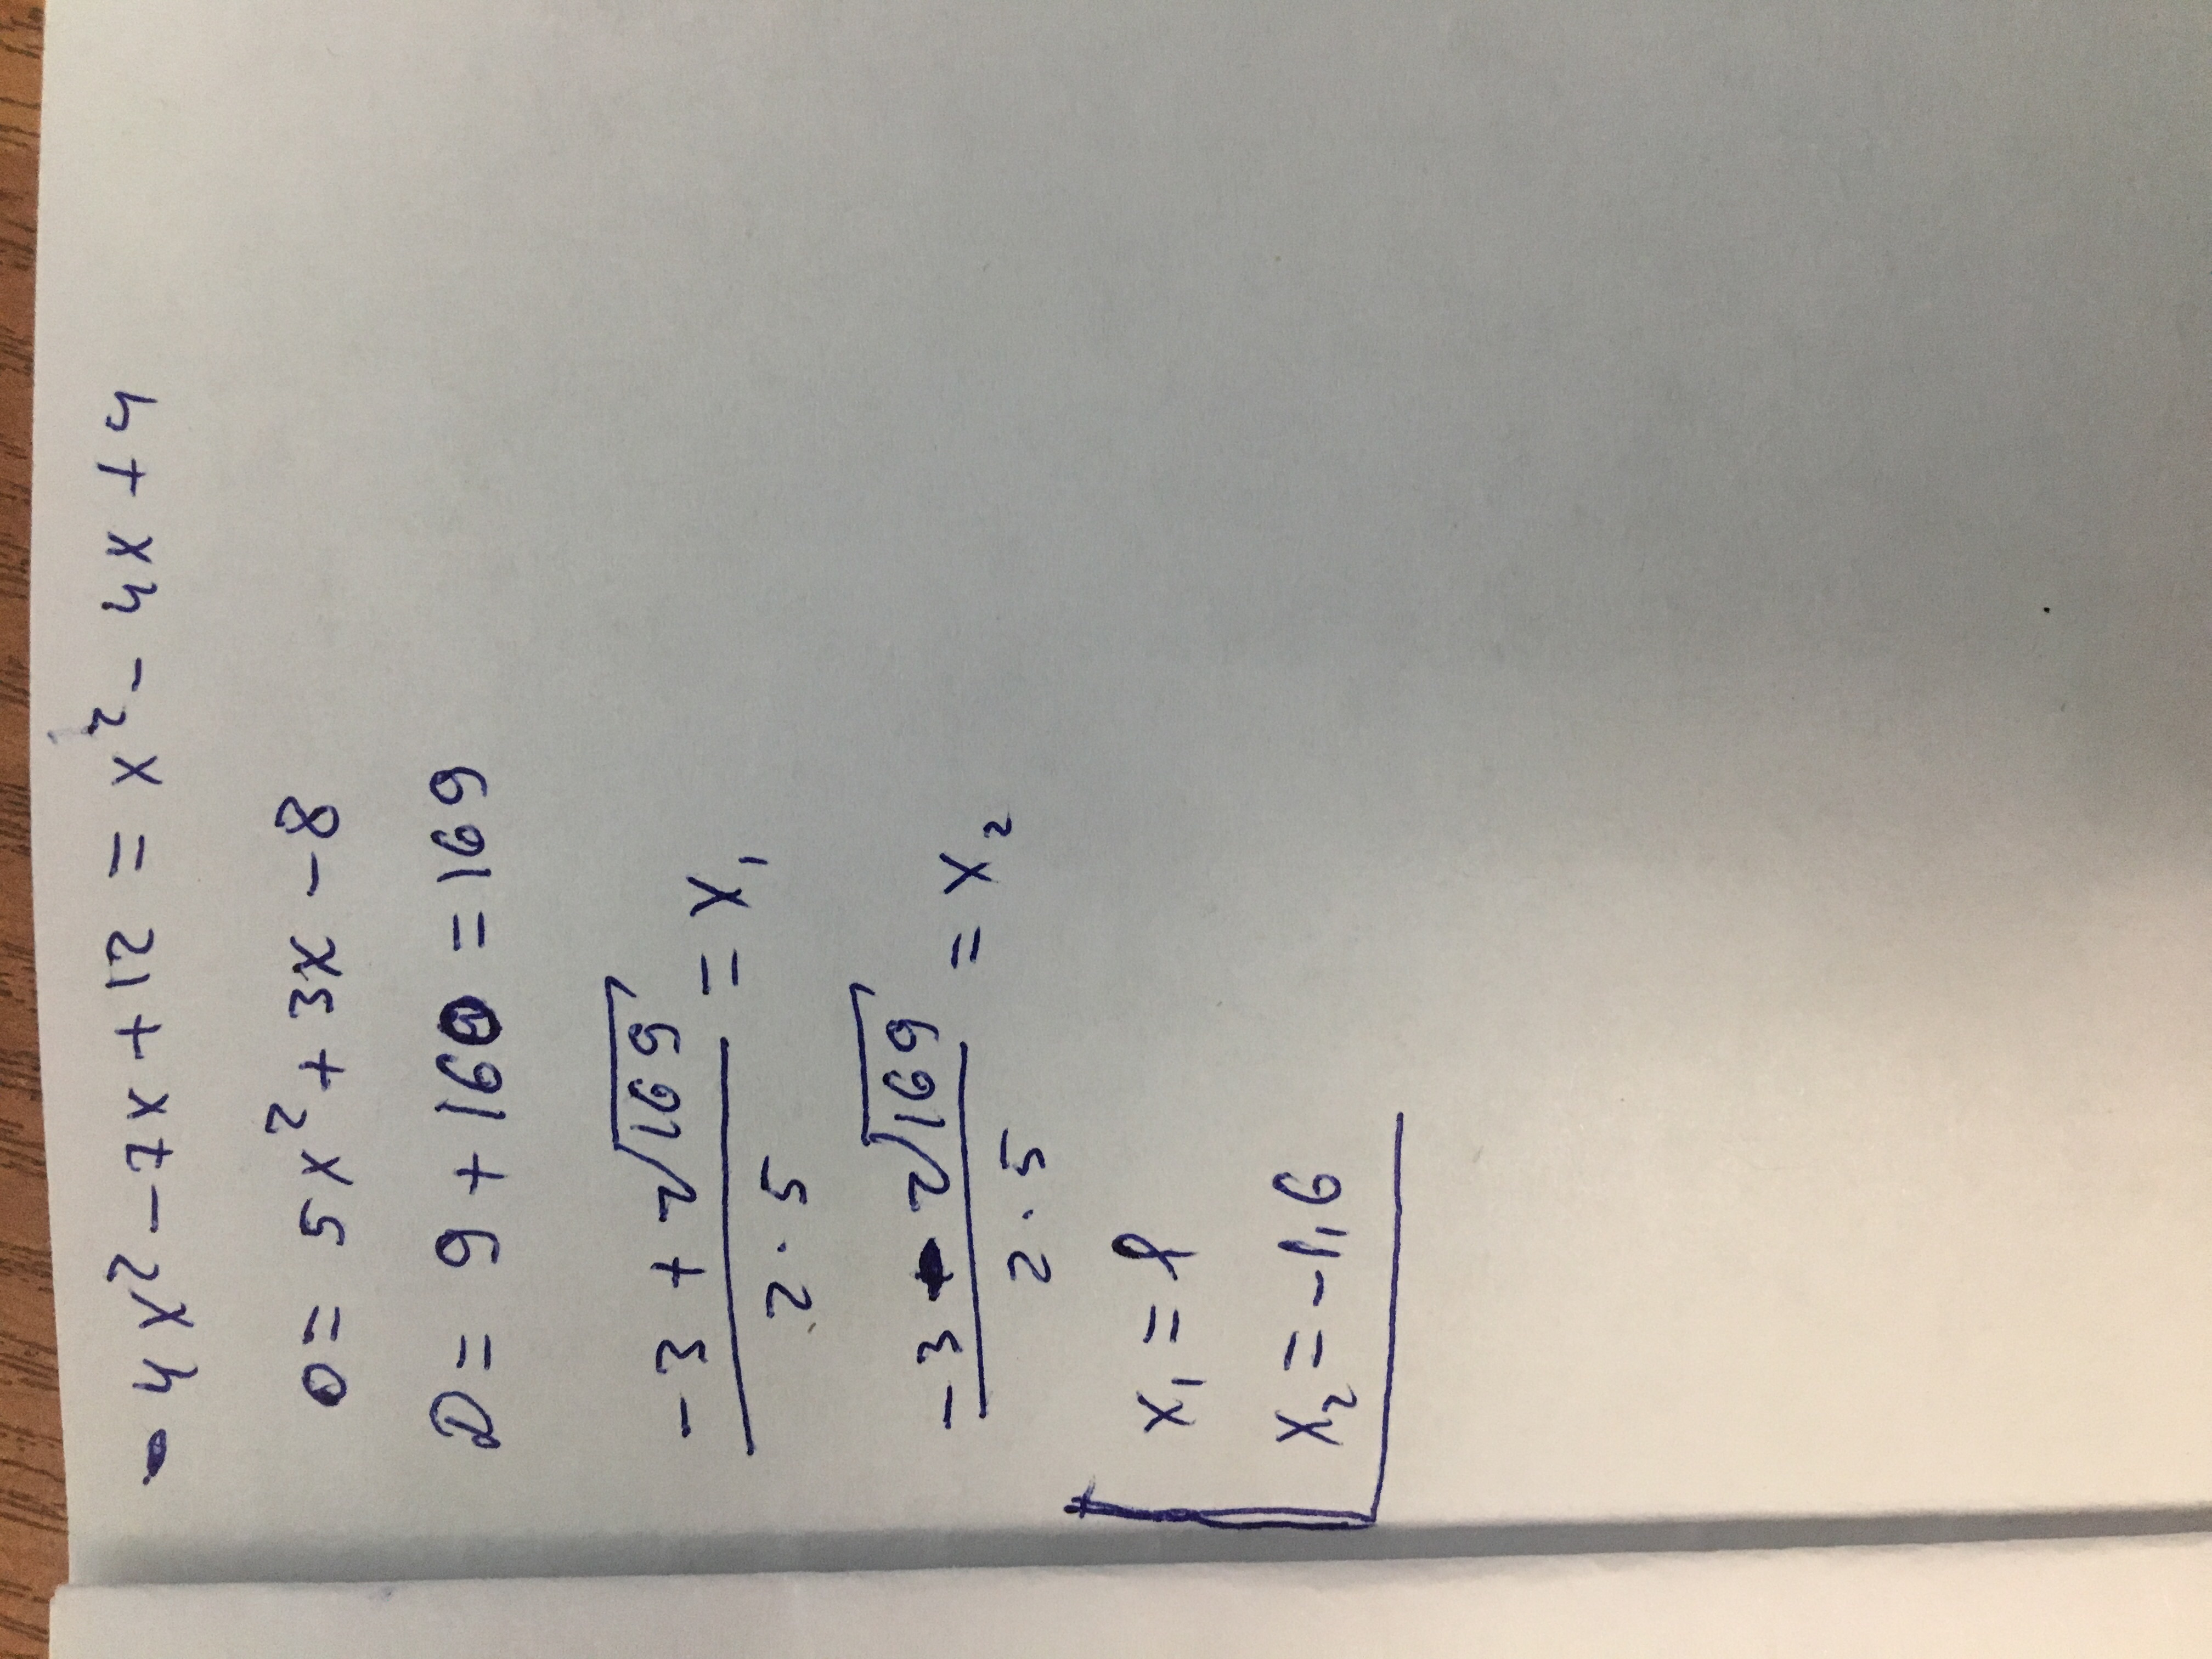 -4x² - 7x + 12 = x² - 4x + 4
0 = 5x² + 3x - 8
D = 9 + 160 = 169
(-3 + √169)/(2·5) = x₁
(-3 - √169)/(2·5) = x₂
x₁ = 1
x₂ = -1,6